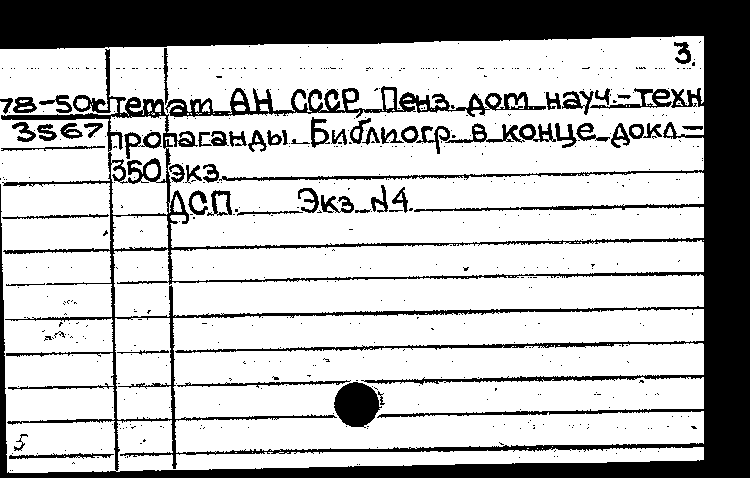 3.
78-50к тетат АН СССР, Пенз. дот науч.-техн
3567 пропаганды. Библиогр. в конце докл.—
350 экз.
ДСП. Экз. №4.
5